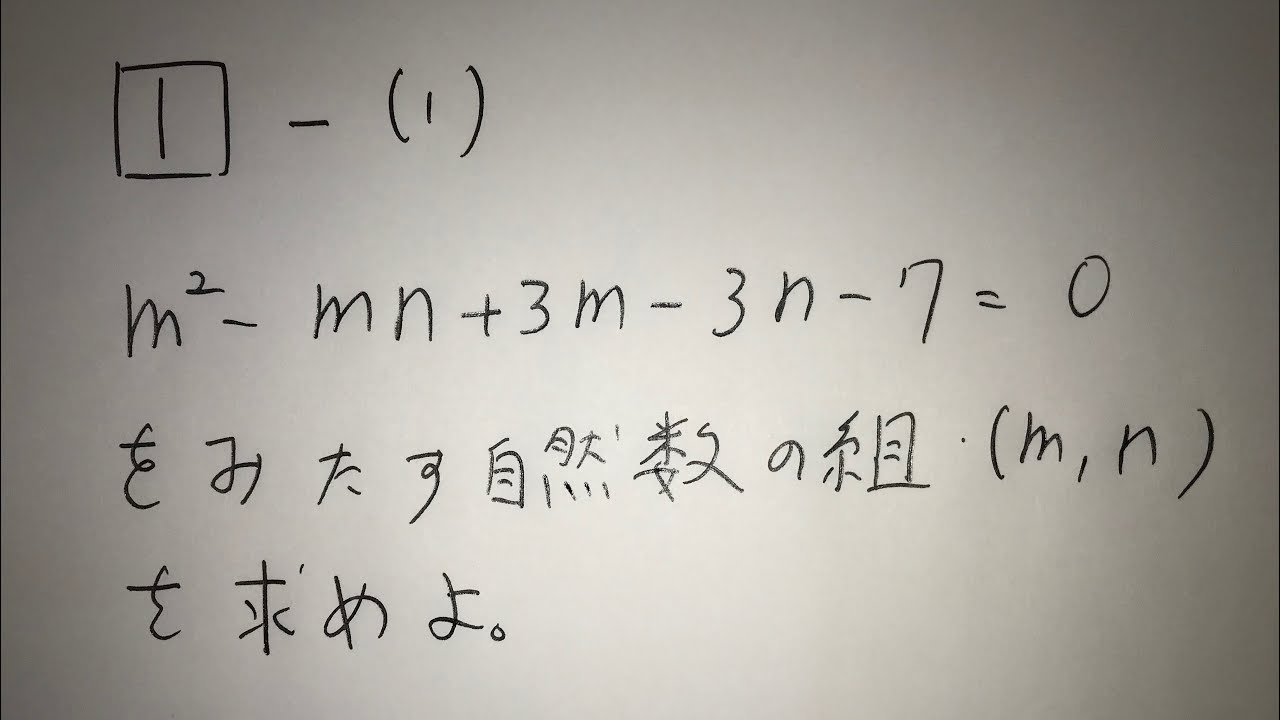 1 - (1)
m² - mn + 3m - 3n - 7 = 0
をみたす自然数の組 (m, n)
を求めよ。